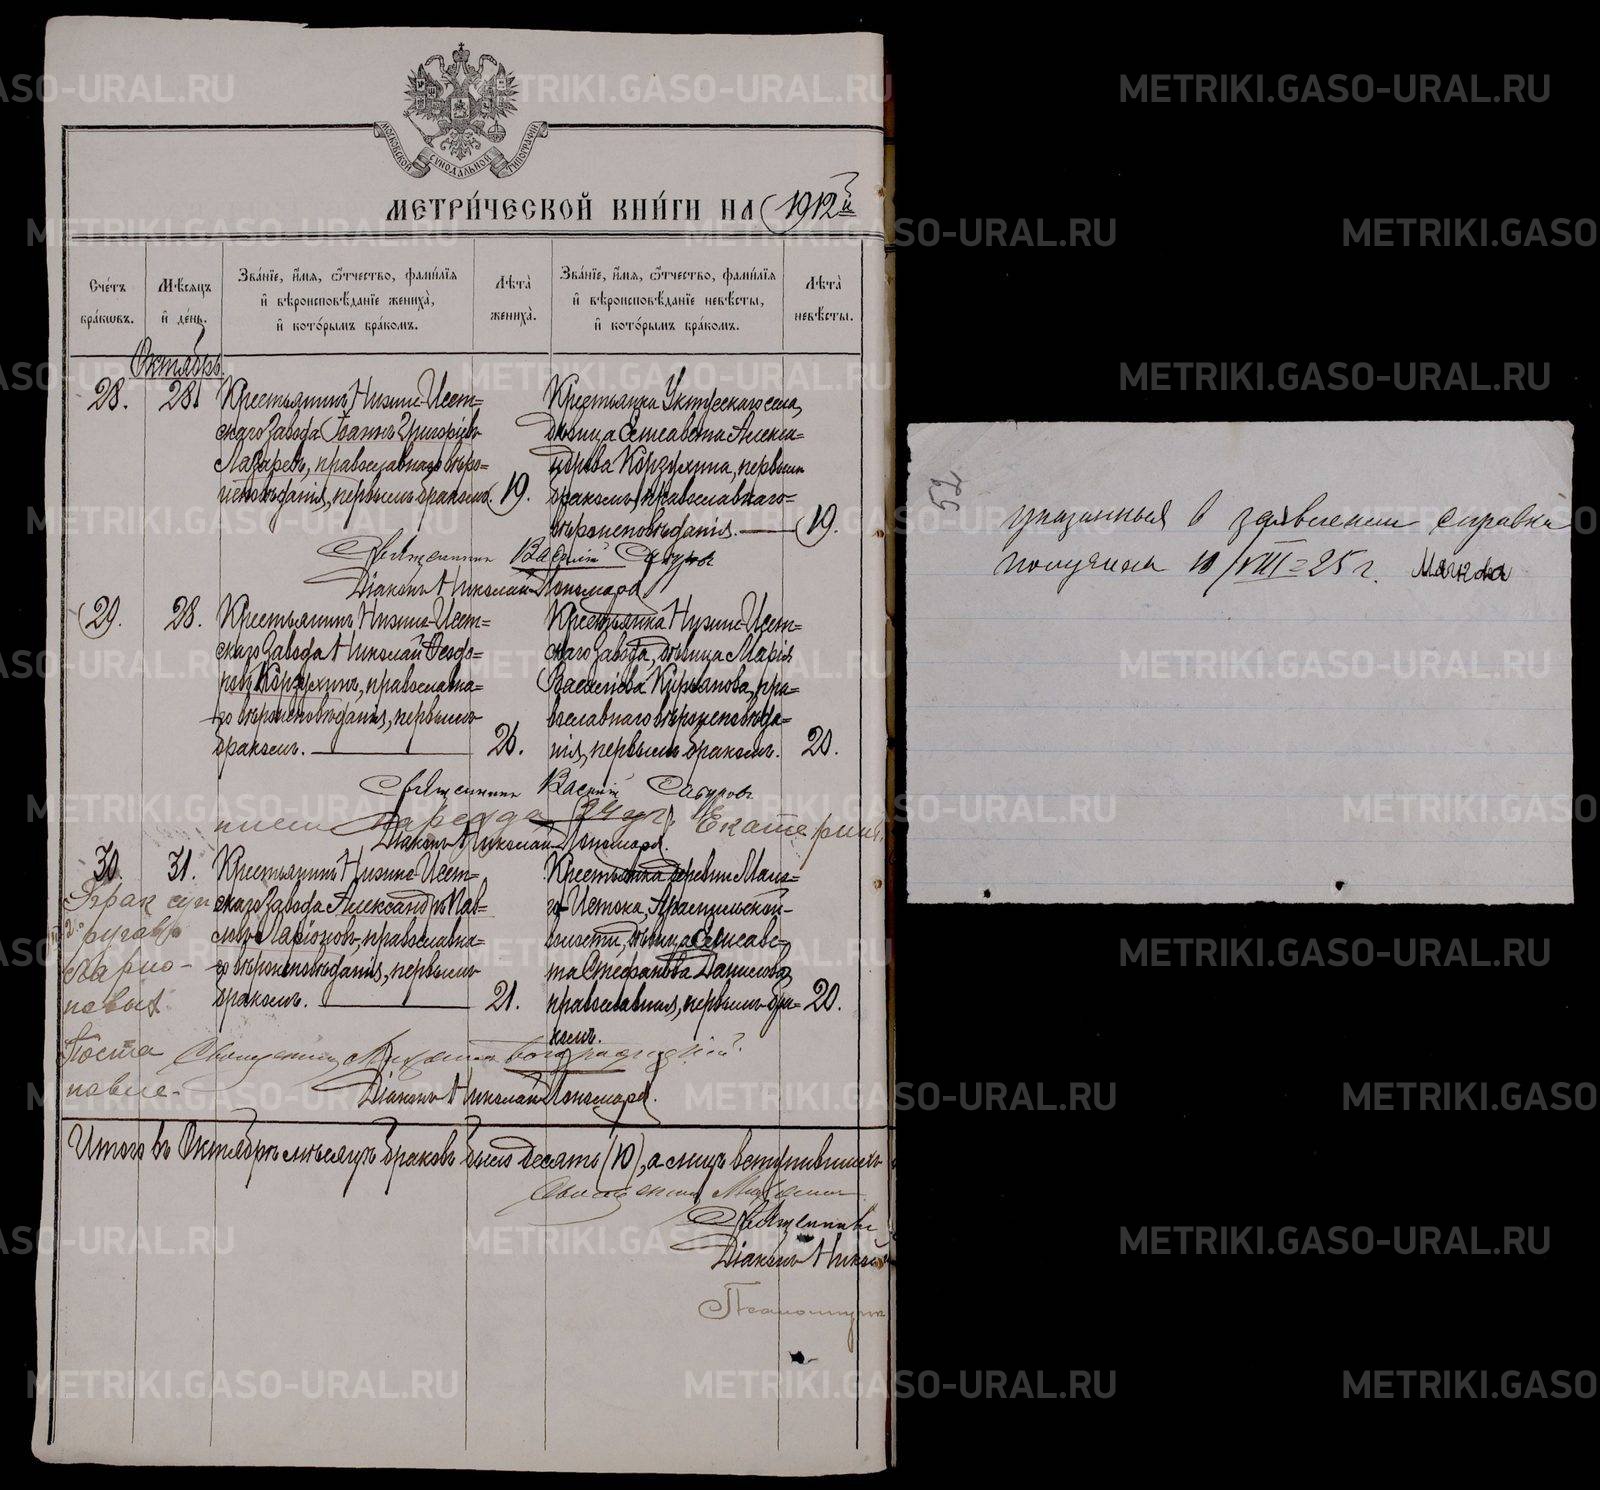 МОСКОВСКОЙ СѴНОДАЛЬНОЙ ТИПОГРАФІИ
МЕТРИ́ЧЕСКОЙ КНИ́ГИ НА 1912 й
Сче́тъ бра́кѡвъ.
Мѣ́сяцъ и҆ де́нь.
Зва́нїе, и҆́мя, ѻ҆́тчество, фами́лїя и҆ вѣроисповѣ́данїе жениха̀, и҆ кото́рымъ бра́комъ.
Лѣ́та жениха̀.
Зва́нїе, и҆́мя, ѻ҆́тчество, фами́лїя и҆ вѣроисповѣ́данїе невѣ́сты, и҆ кото́рымъ бра́комъ.
Лѣ́та невѣ́сты.
Октябрь.
28.
28.
Крестьянинъ Нижне-Исет=
скаго Завода Іоаннъ Григоріевъ
Лазаревъ, православнаго вѣро=
исповѣданія, первымъ бракомъ.
19.
Крестьянка Уктусскаго села,
дѣвица Елисавета Алекса=
ндрова Корзухина, первымъ
бракомъ, православнаго=
вѣроисповѣданія.
19.
Священникъ Василій Сабуровъ
Діаконъ Николай Пономаревъ
29.
28.
Крестьянинъ Нижне-Исет=
скаго Завода Николай Ѳеодо=
ровъ Корзухинъ, православна=
го вѣроисповѣданія, первымъ
бракомъ.
26.
Крестьянка Нижне-Исет=
скаго Завода, дѣвица Марія
Василіева Кирьянова, пра=
вославнаго вѣроисповѣда=
нія, первымъ бракомъ.
20.
Священникъ Василій Сабуровъ
Діаконъ Николай Пономаревъ.
30.
31.
Крестьянинъ Нижне-Исет=
скаго Завода Александръ Пав=
ловъ Ларіоновъ, православна=
го вѣроисповѣданія, первымъ
бракомъ.
21.
Крестьянка деревни Мала=
го Истока, Арамильской
волости, дѣвица Елисаве=
та Стефанова Данилова,
православная, первымъ бра=
комъ.
20.
Брак суп
ругов
Ларио-
новых
Священникъ Михаилъ
Діаконъ Николай Пономаревъ.
Итого въ Октябрѣ мѣсяцѣ браковъ было десять (10), а лицъ вступившихъ
Священникъ Михаилъ
Священникъ
Діаконъ Никол
Псаломщик
52
указанная в заявлении справка
получена 10/VIII=25 г.
METRIKI.GASO-URAL.RU